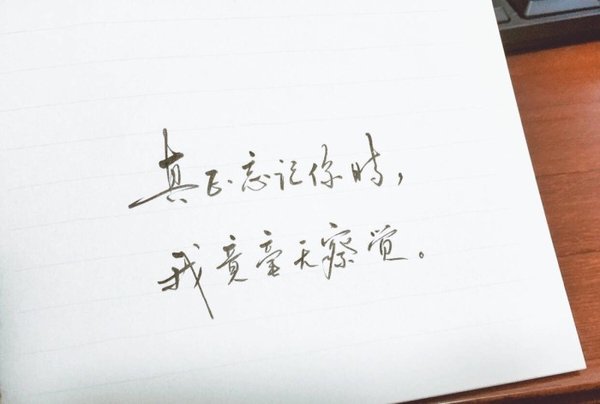 真正忘记你时，
我竟毫无察觉。